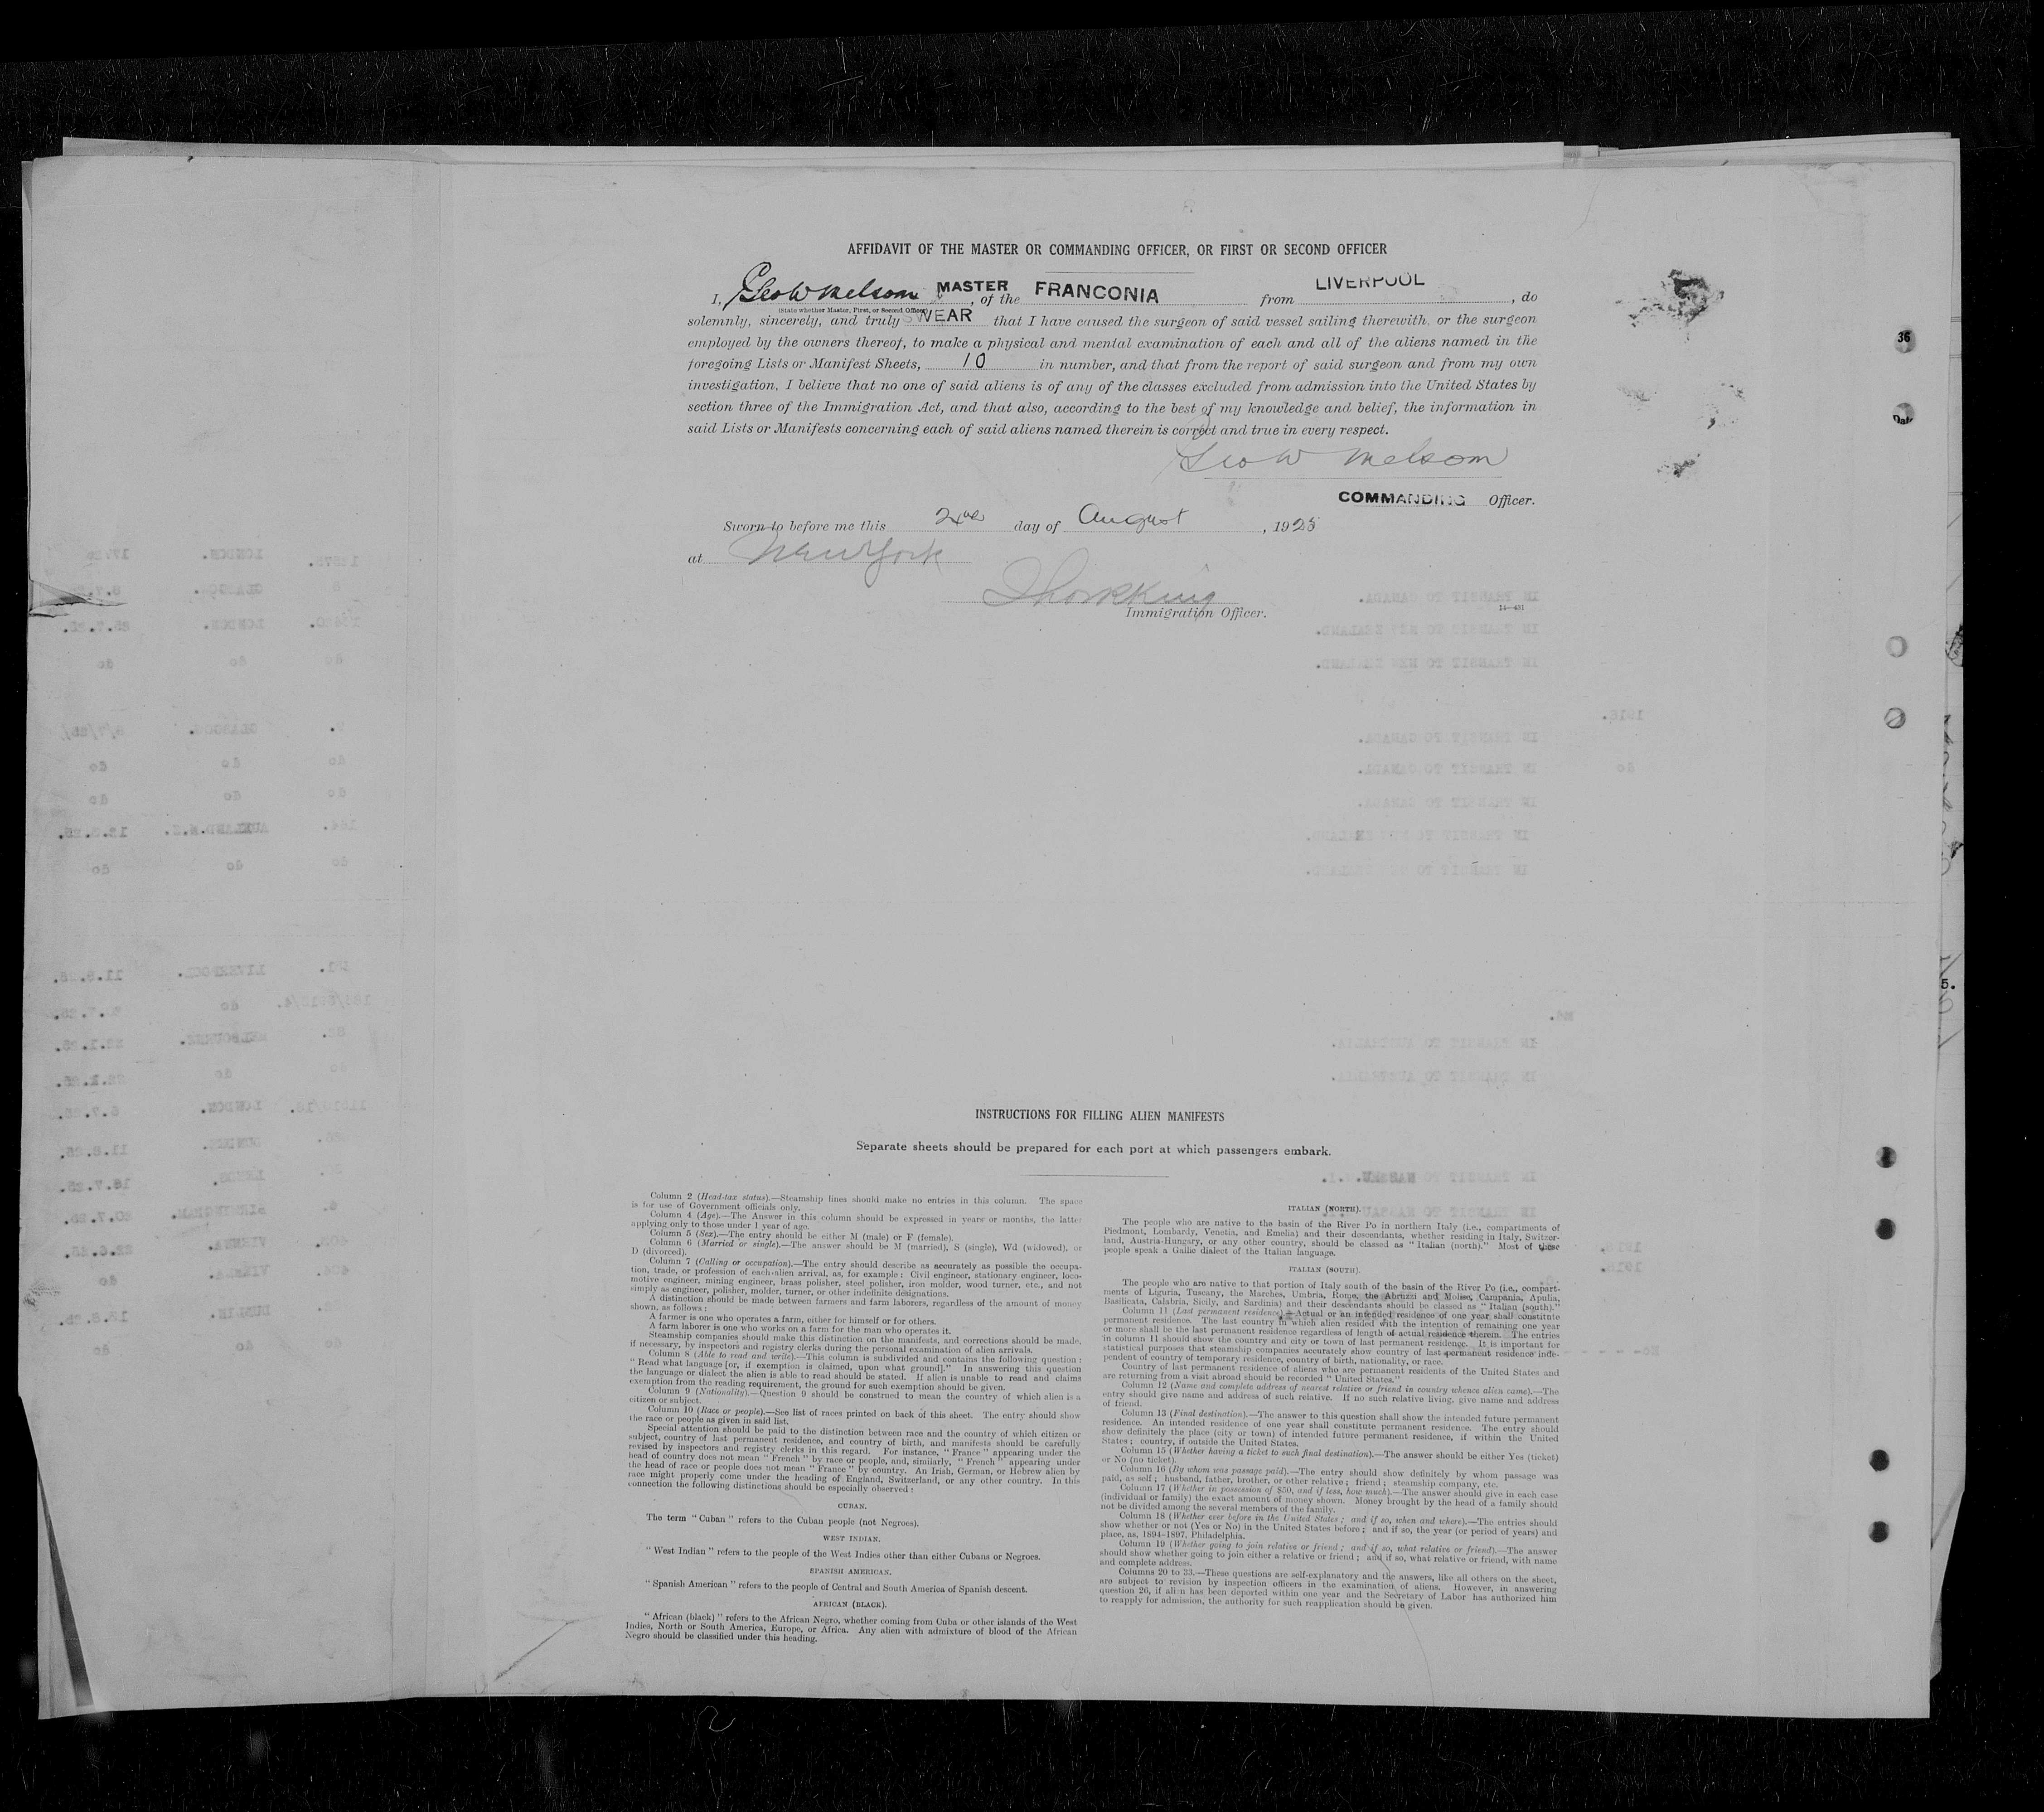 AFFIDAVIT OF THE MASTER OR COMMANDING OFFICER, OR FIRST OR SECOND OFFICER
I, Geo W Melsom MASTER, of the FRANCONIA from LIVERPOOL, do
(State whether Master, First, or Second Officer)
solemnly, sincerely, and truly SWEAR that I have caused the surgeon of said vessel sailing therewith, or the surgeon
employed by the owners thereof, to make a physical and mental examination of each and all of the aliens named in the
foregoing Lists or Manifest Sheets, 10 in number, and that from the report of said surgeon and from my own
investigation, I believe that no one of said aliens is of any of the classes excluded from admission into the United States by
section three of the Immigration Act, and that also, according to the best of my knowledge and belief, the information in
said Lists or Manifests concerning each of said aliens named therein is correct and true in every respect.
Geo W Melsom
COMMANDING Officer.
Sworn to before me this day of August, 1925
at New York
Immigration Officer.
14—431
36
Dat
5.
INSTRUCTIONS FOR FILLING ALIEN MANIFESTS
Separate sheets should be prepared for each port at which passengers embark.
Column 2 (Head-tax status).—Steamship lines should make no entries in this column. The space
is for use of Government officials only.
Column 4 (Age).—The Answer in this column should be expressed in years or months, the latter
applying only to those under 1 year of age.
Column 5 (Sex).—The entry should be either M (male) or F (female).
Column 6 (Married or single).—The answer should be M (married), S (single), Wd (widowed), or
D (divorced).
Column 7 (Calling or occupation).—The entry should describe as accurately as possible the occupa-
tion, trade, or profession of each alien arrival, as, for example: Civil engineer, stationary engineer, loco-
motive engineer, mining engineer, brass polisher, steel polisher, iron molder, wood turner, etc., and not
simply as engineer, polisher, molder, turner, or other indefinite designations.
A distinction should be made between farmers and farm laborers, regardless of the amount of money
shown, as follows:
A farmer is one who operates a farm, either for himself or for others.
A farm laborer is one who works on a farm for the man who operates it.
Steamship companies should make this distinction on the manifests, and corrections should be made,
if necessary, by inspectors and registry clerks during the personal examination of alien arrivals.
Column 8 (Able to read and write).—This column is subdivided and contains the following question:
"Read what language [or, if exemption is claimed, upon what ground]." In answering this question
the language or dialect the alien is able to read should be stated. If alien is unable to read and claims
exemption from the reading requirement, the ground for such exemption should be given.
Column 9 (Nationality).—Question 9 should be construed to mean the country of which alien is a
citizen or subject.
Column 10 (Race or people).—See list of races printed on back of this sheet. The entry should show
the race or people as given in said list.
Special attention should be paid to the distinction between race and the country of which citizen or
subject, country of last permanent residence, and country of birth, and manifests should be carefully
revised by inspectors and registry clerks in this regard. For instance, "France" appearing under the
head of country does not mean "French" by race or people, and, similarly, "French" appearing under
the head of race or people does not mean "France" by country. An Irish, German, or Hebrew alien by
race might properly come under the heading of England, Switzerland, or any other country. In this
connection the following distinctions should be especially observed:
CUBAN.
The term "Cuban" refers to the Cuban people (not Negroes).
WEST INDIAN.
"West Indian" refers to the people of the West Indies other than either Cubans or Negroes.
SPANISH AMERICAN.
"Spanish American" refers to the people of Central and South America of Spanish descent.
AFRICAN (BLACK).
"African (black)" refers to the African Negro, whether coming from Cuba or other islands of the West
Indies, North or South America, Europe, or Africa. Any alien with admixture of blood of the African
Negro should be classified under this heading.
ITALIAN (NORTH).
The people who are native to the basin of the River Po in northern Italy (i.e., compartments of
Piedmont, Lombardy, Venetia, and Emelia) and their descendants, whether residing in Italy, Switzer-
land, Austria-Hungary, or any other country, should be classed as "Italian (north)." Most of these
people speak a Gallic dialect of the Italian language.
ITALIAN (SOUTH).
The people who are native to that portion of Italy south of the basin of the River Po (i.e., compart-
ments of Liguria, Tuscany, the Marches, Umbria, Rome, the Abruzzi and Molise, Campania, Apulia,
Basilicata, Calabria, Sicily, and Sardinia) and their descendants should be classed as "Italian (south)."
Column 11 (Last permanent residence).—Actual or an intended residence of one year shall constitute
permanent residence. The last country in which alien resided with the intention of remaining one year
or more shall be the last permanent residence regardless of length of actual residence therein. The entries
in column 11 should show the country and city or town of last permanent residence. It is important for
statistical purposes that steamship companies accurately show country of last permanent residence inde-
pendent of country of temporary residence, country of birth, nationality, or race.
Country of last permanent residence of aliens who are permanent residents of the United States and
are returning from a visit abroad should be recorded "United States."
Column 12 (Name and complete address of nearest relative or friend in country whence alien came).—The
entry should give name and address of such relative. If no such relative living, give name and address
of friend.
Column 13 (Final destination).—The answer to this question shall show the intended future permanent
residence. An intended residence of one year shall constitute permanent residence. The entry should
show definitely the place (city or town) of intended future permanent residence, if within the United
States; country, if outside the United States.
Column 15 (Whether having a ticket to such final destination).—The answer should be either Yes (ticket)
or No (no ticket).
Column 16 (By whom was passage paid).—The entry should show definitely by whom passage was
paid, as self; husband, father, brother, or other relative; friend; steamship company, etc.
Column 17 (Whether in possession of $50, and if less, how much).—The answer should give in each case
(individual or family) the exact amount of money shown. Money brought by the head of a family should
not be divided among the several members of the family.
Column 18 (Whether ever before in the United States; and if so, when and where).—The entries should
show whether or not (Yes or No) in the United States before; and if so, the year (or period of years) and
place, as, 1894-1897, Philadelphia.
Column 19 (Whether going to join relative or friend; and if so, what relative or friend).—The answer
should show whether going to join either a relative or friend; and if so, what relative or friend, with name
and complete address.
Columns 20 to 33.—These questions are self-explanatory and the answers, like all others on the sheet,
are subject to revision by inspection officers in the examination of aliens. However, in answering
question 26, if alien has been deported within one year and the Secretary of Labor has authorized him
to reapply for admission, the authority for such reapplication should be given.
2